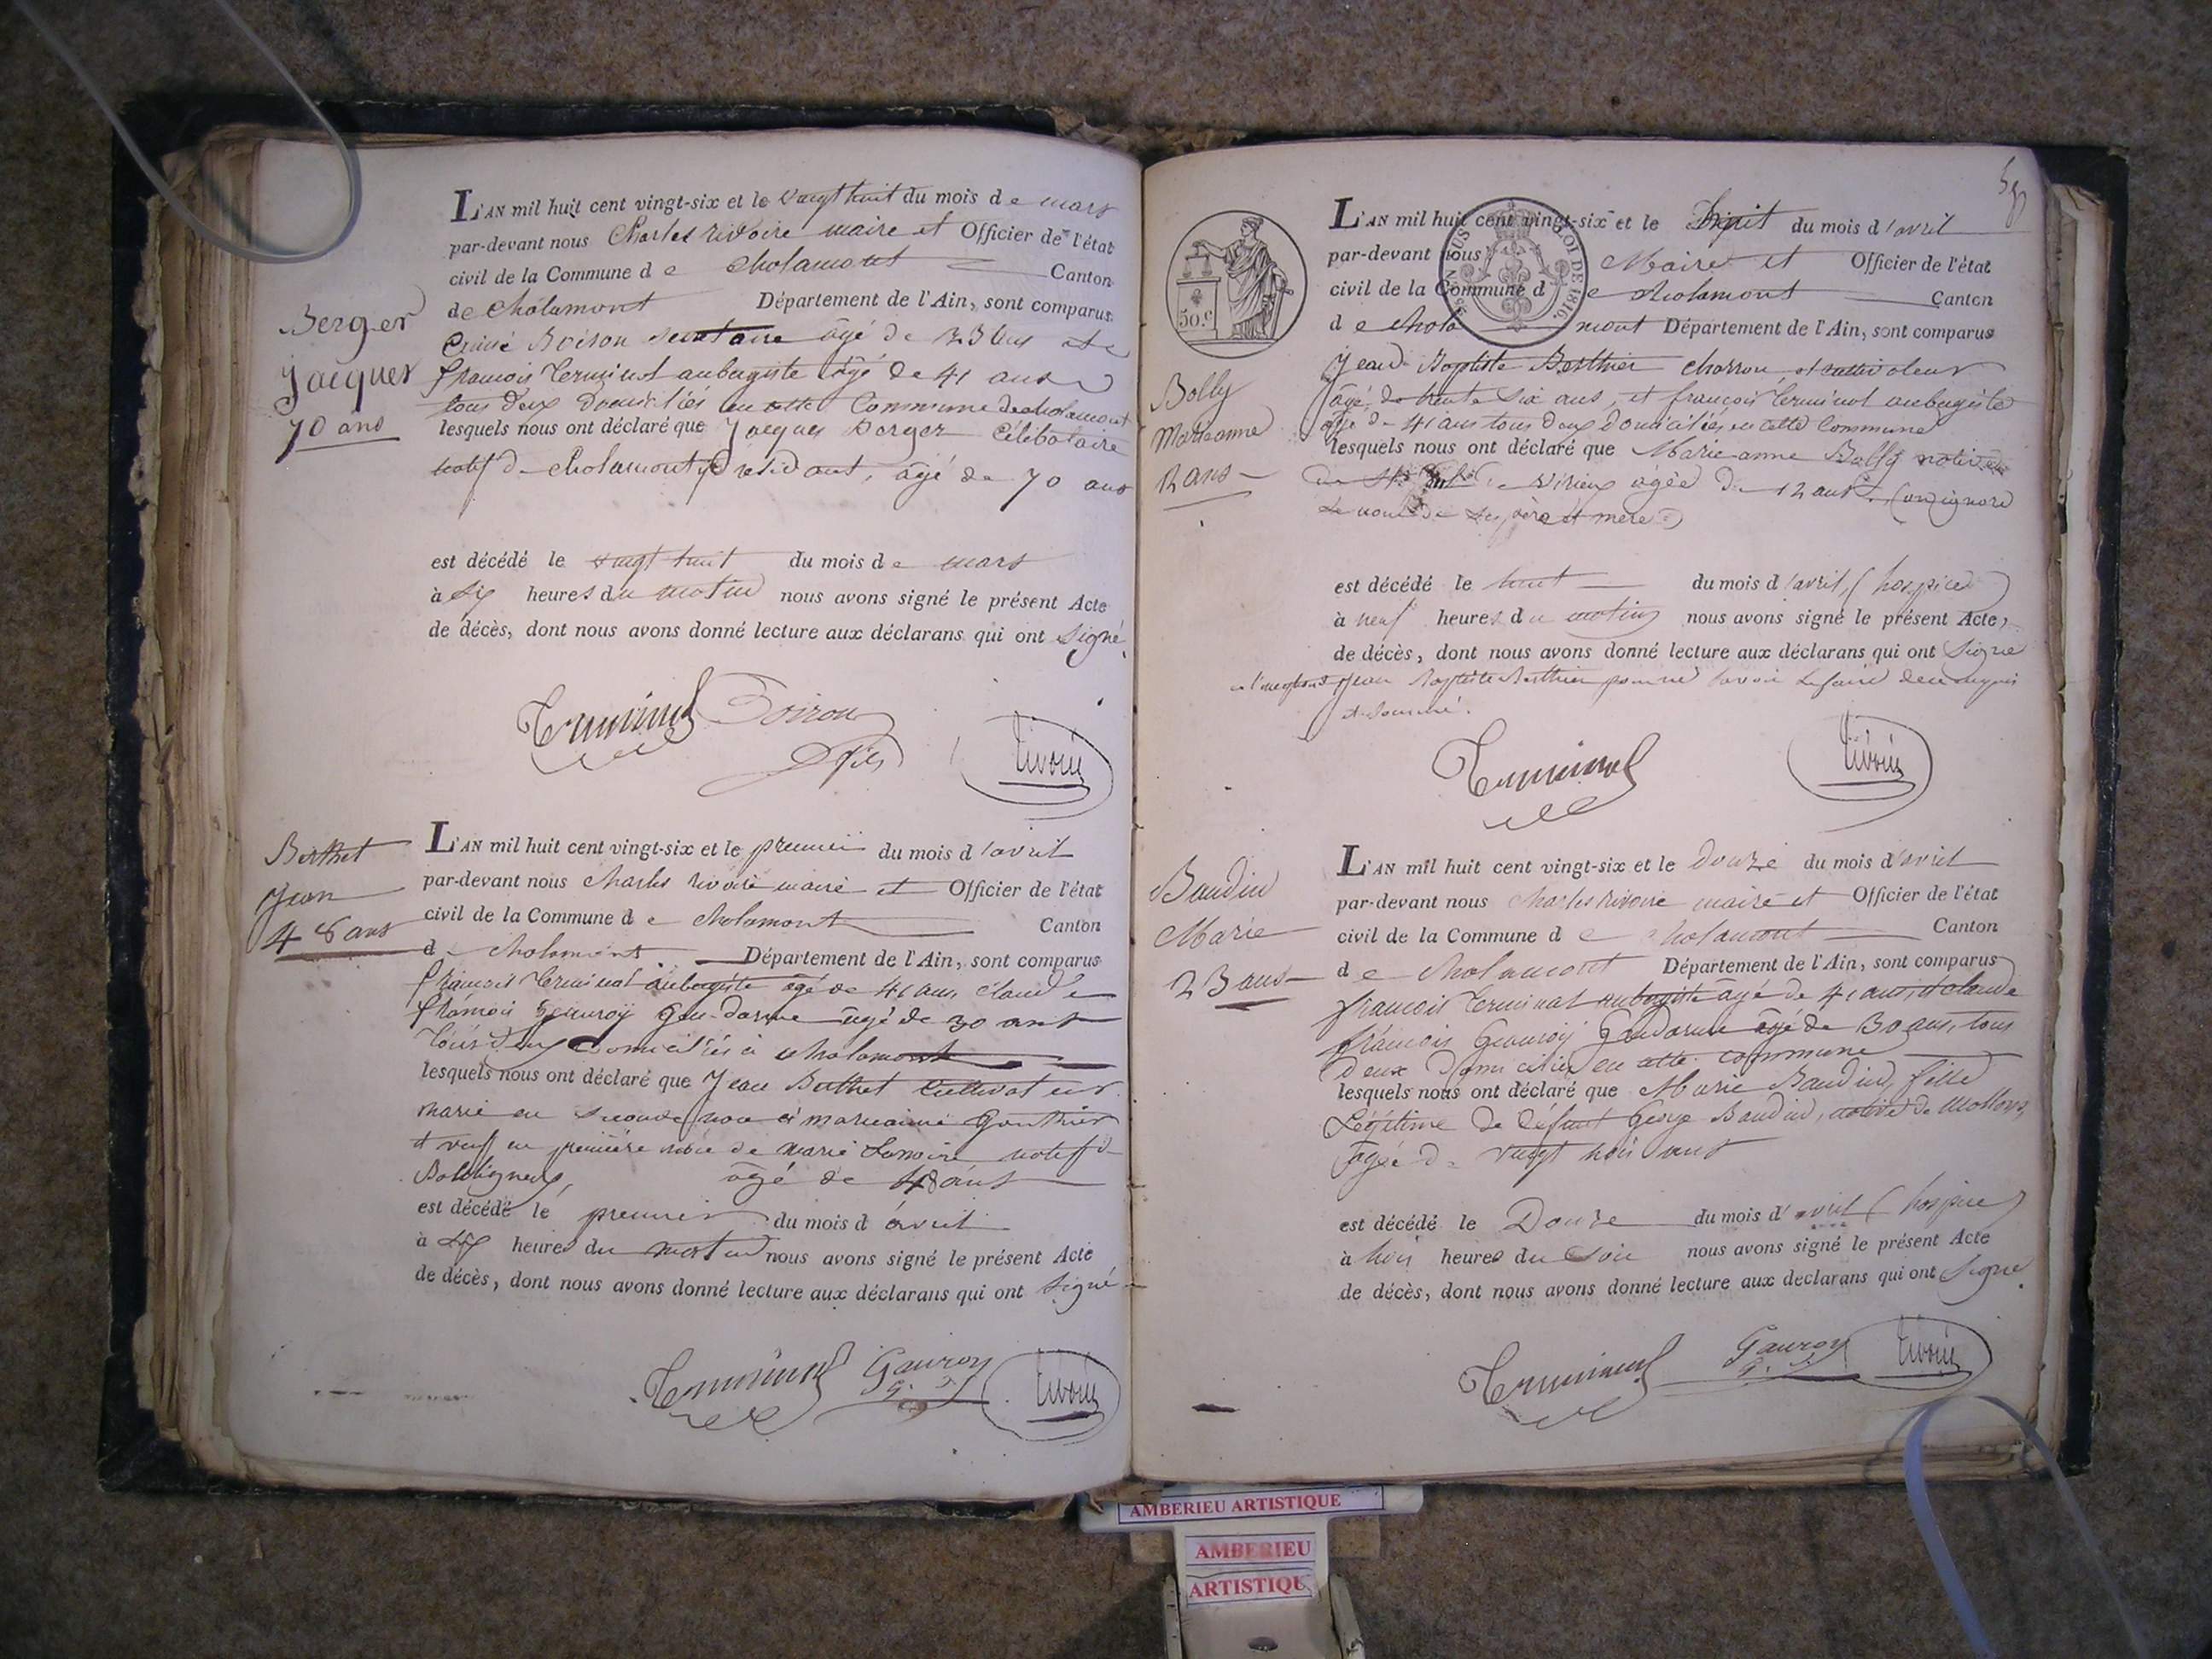 L'AN mil huit cent vingt-six et le vingt huit du mois de mars
par-devant nous Charles rivoire maire et Officier de l'état
civil de la Commune de Cholamont Canton
de Cholamont Département de l'Ain, sont comparus
Boiron secretaire âgé de 23 ans et
francois Terminat aubergiste âgé de 41 ans
tous deux Domiciliés en cette Commune de cholamont
lesquels nous ont déclaré que Jacques Berger Célibataire
natif de cholamont y residant, âgé de 70 ans
est décédé le vingt huit du mois de mars
à six heures du matin nous avons signé le présent Acte
de décès, dont nous avons donné lecture aux déclarans qui ont signé
Berger
Jacques
70 ans
Terminat Boiron
fils
rivoire
Berthet
Jean
48 ans
L'AN mil huit cent vingt-six et le premier du mois d'avril
par-devant nous Charles rivoire maire et Officier de l'état
civil de la Commune de cholamont Canton
de cholamont Département de l'Ain, sont comparus
francois Terminat aubergiste âgé de 41 ans, claude
françois Gauroy Gendarme âgé de 30 ans
tous deux Domiciliés à cholamont
lesquels nous ont déclaré que Jean Berthet Cultivateur
marié en seconde noce à marieanne Gonthier
et veuf en première noce de marie natif de
âgé de 48 ans
est décédé le premier du mois d'avril
à six heures du matin nous avons signé le présent Acte
de décès, dont nous avons donné lecture aux déclarans qui ont signé
Terminat Gauroy rivoire
50.c
LOI DE 1816.
Bolly
Marieanne
12 ans
L'AN mil huit cent vingt-six et le huit du mois d'avril
par-devant nous Maire et Officier de l'état
civil de la Commune de cholamont Canton
de chola mont Département de l'Ain, sont comparus
Jean Baptiste Berthier charron et cultivateur
âgé de trente six ans, et françois Terminat aubergiste
âgé de 41 ans tous deux Domiciliés en cette Commune
lesquels nous ont déclaré que Marie anne Bolly native
de virieux âgée de 12 ans, (on ignore
le nom de ses père et mère)
est décédé le huit du mois d'avril, (hospice)
à neuf heures du matin nous avons signé le présent Acte,
de décès, dont nous avons donné lecture aux déclarans qui ont signé
a l'exception de Jean Baptiste Berthier pour ne savoir le faire de ce requis
et sommé.
Terminat rivoire
Baudin
Marie
23 ans
L'AN mil huit cent vingt-six et le douze du mois d'avril
par-devant nous charles rivoire maire et Officier de l'état
civil de la Commune de cholamont Canton
de cholamont Département de l'Ain, sont comparus
francois Terminat aubergiste âgé de 41 ans, et claude
françois Gauroy Gendarme âgé de 30 ans, tous
deux Domiciliés en cette commune
lesquels nous ont déclaré que Marie Baudin, fille
Légitime de défunt George Baudin, native de
âgée de vingt trois ans
est décédé le Douze du mois d'avril (hospice)
à trois heures du soir nous avons signé le présent Acte
de décès, dont nous avons donné lecture aux declarans qui ont signé
Terminat Gauroy rivoire
AMBERIEU ARTISTIQUE
AMBERIEU
ARTISTIQU